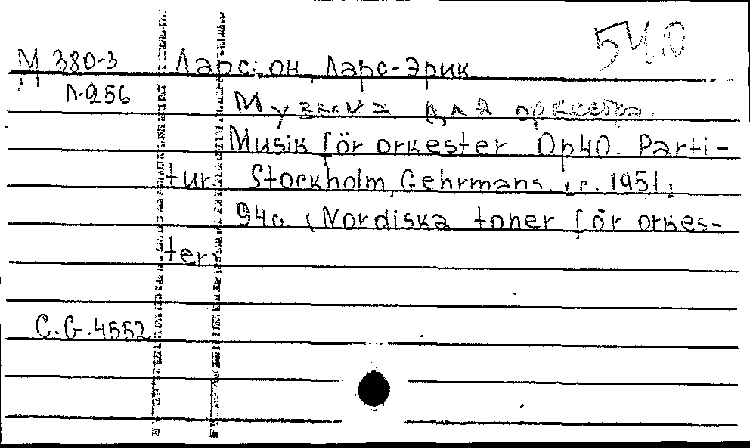 540
М 380-3 Ларссон, Ларс-Эрик
Л-256 Музыка для оркестра.
Musik för orkester Op40. Parti-
tur. Stockholm, Gehrmans, 1951.
94с. (Nordiska toner för orkes-
ter)
C.G.4552